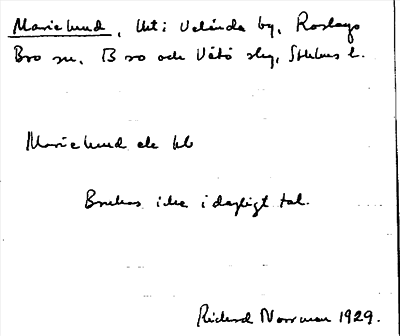 Marielund, lht i Velända by, Roslags
Bro sn, Bro och Vätö skg, Sthlms l.
Marielund ek kb
Brukas icke i dagligt tal.
Rickard Norrman 1929.